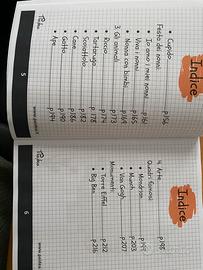 Indice
• Cupido p.152
Festa dei nonni
• Io amo i miei nonni p.161
• Viva i nonni p.164
• Nonna con bimbi p.165
3. Gli animali p.173
• Riccio p.174
• Tartaruga p.178
• Scoiattolo p.182
• Cane p.186
• Gatto p.190
• Ape p.194
5
Indice
4. Arte p.198
Quadri famosi
• Mondrian p.199
• Munch p.203
• Van Gogh p.207
Monumenti
• Torre Eiffel p.212
• Big Ben p.216
6